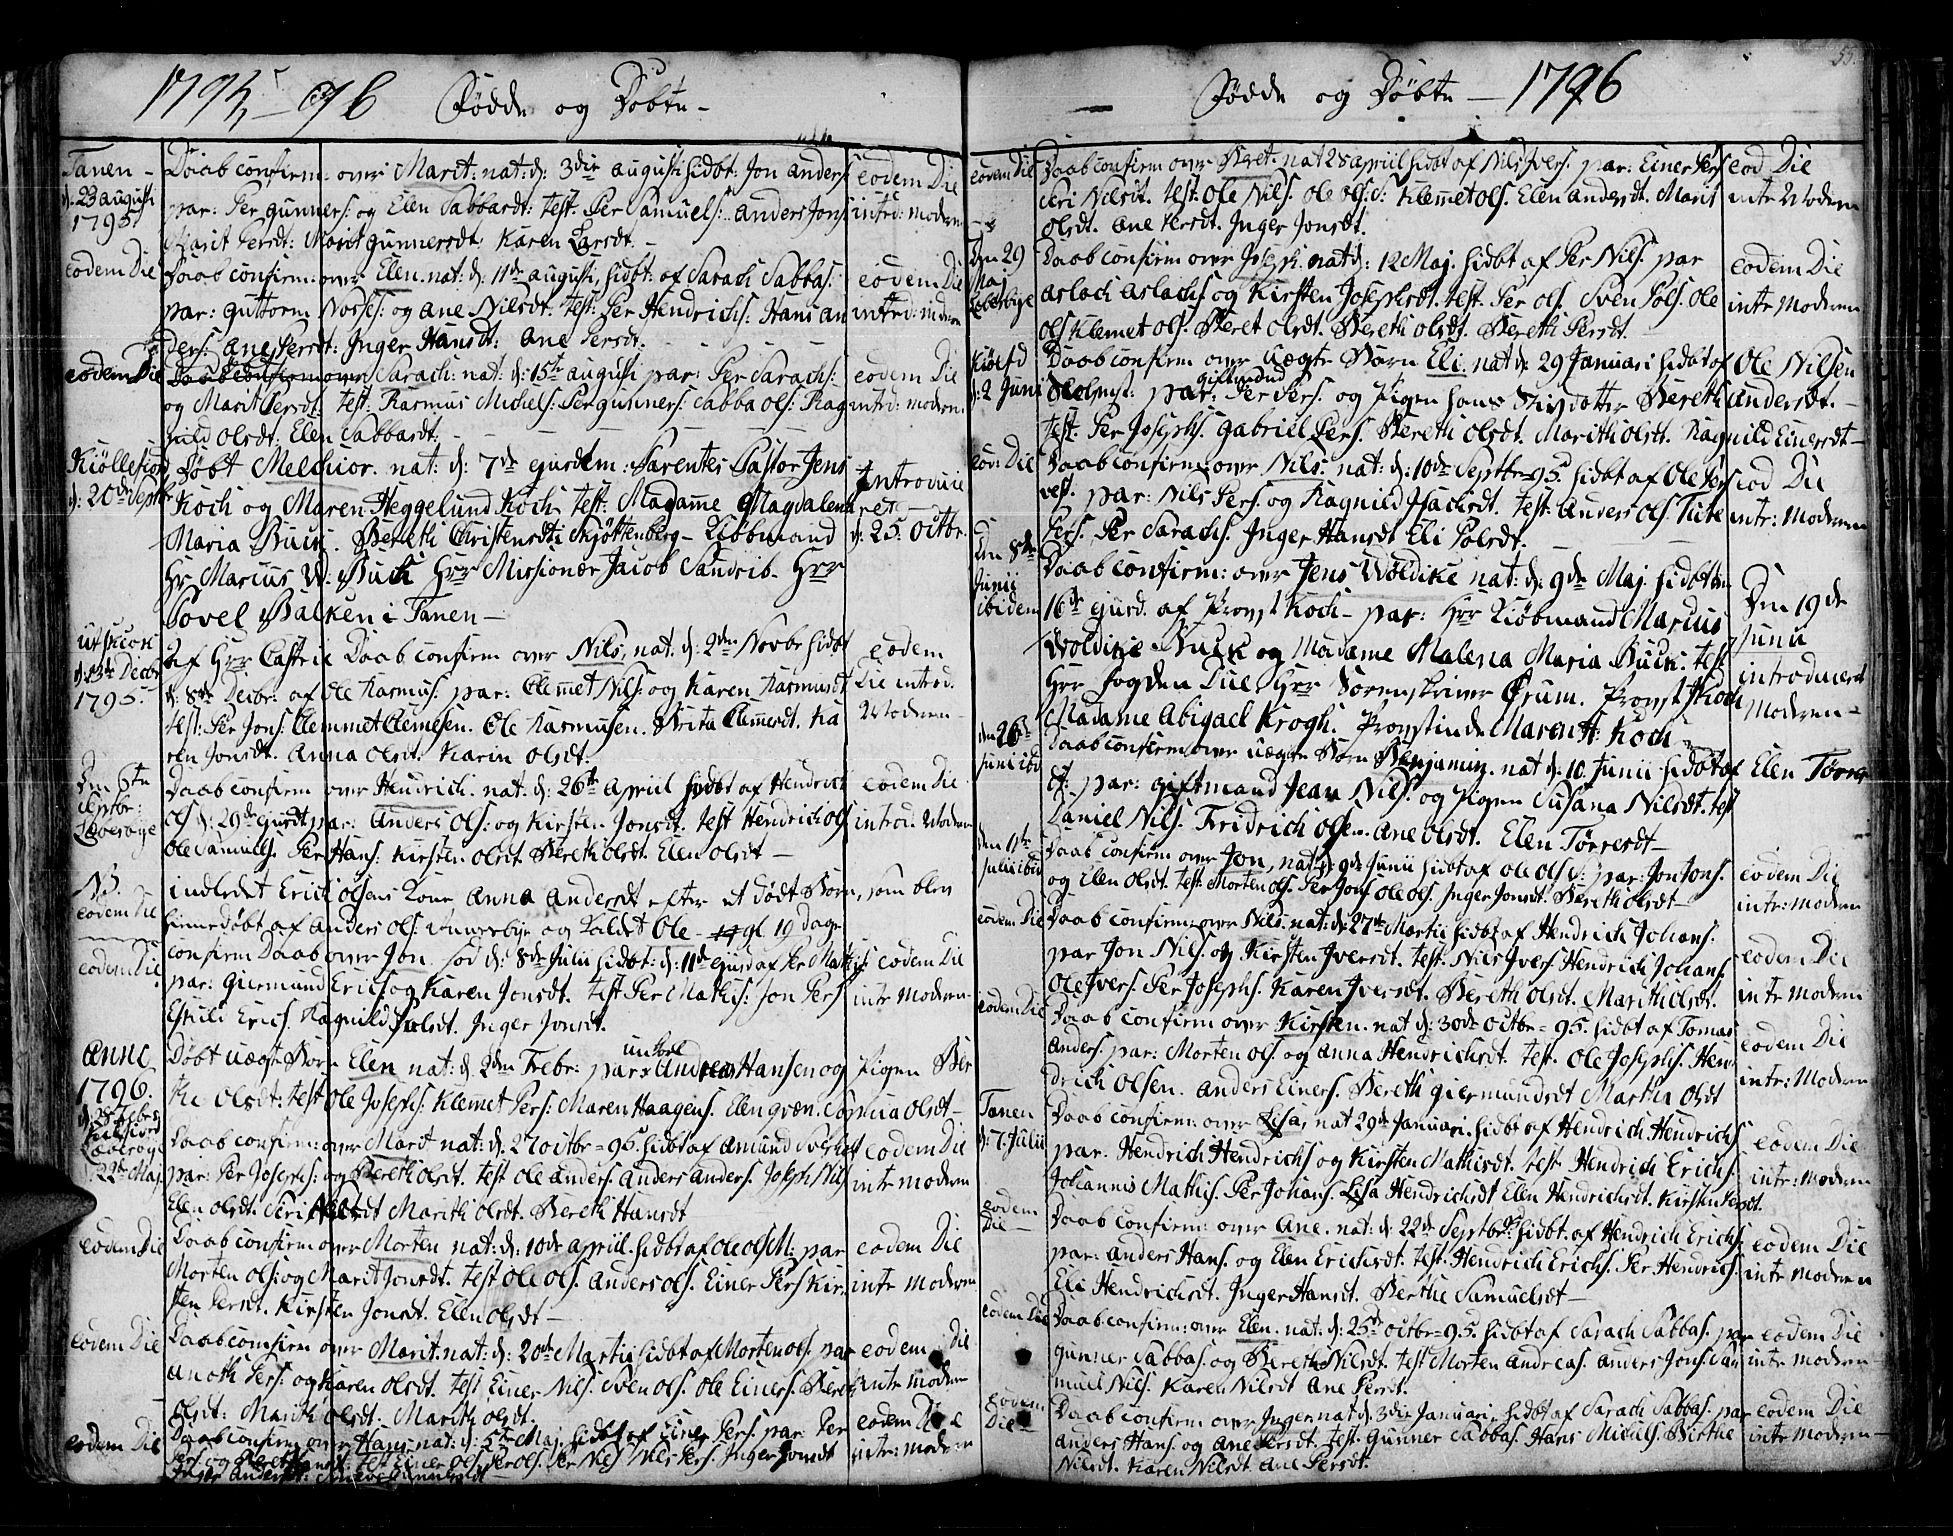 1795 - 96 Födde og Döbte -
Tanen -
d: 23 augusti
1795.
Daab confirm: over Marit: nat: d: 3die augusti hidbt: Jon anders:
par: Per gunners: og Elen Sabbasdt: test: Per Samuels: anders Jons
Marit Persdt: Marit gunnersdt: Karen Larsdt. -
eodem Die
intrd: modern
eodem Die
Daab confirm: over Elen. nat: d: 11te augusti, hidbt: af Sarach Sabbas:
par: guttorm: og ane Nilsdt: test: Per Hendrichs: Hans an
ders: ane Persdt: Inger Hansdt: ane Persdt.
eodem Die
intrd: modern
eodem Die
Daab confirm over Sarach: nat: d: 15te augusti par: Per Sarachs:
og Marit Persdt: test: Rasmus Michels: Per gunners: Sabba ols: Rag
nild olsdt: Elen Sabbasdt.
eodem Die
intrd: modern
Kiöllefiord
d: 20de Septbr
Döbt Melchior. nat: d: 7de ejusdem: Parentes Pastor Jens
Koch og Maren Heggelund Koch test: Madame Magdalena
Maria Buck. Bereth Christensdt: Skjöttenberg - Kiöbmand
Hr Marcus W: Buck Hrr Missionær Jacob Sandrib. Hrr
Povel Balken i Tanen -
Introduce
ret -
d: 25. octbr.
d: 13de Decbr
1795.
af Hrr Castrie Daab confirm over Nils, nat: d: 2den Novbr hidbt
d: 8de Decbr: af Ole Rasmus. par: Clemet Nils: og Karen Rasmusdt
test: Per Jons: Clemmet Clemesen. Ole Rasmusen. Brita Clemetdt. Ka
ren Jonsdt. Anna olsdt. Karin olsdt.
eodem
Die introd.
Modren -
Daab confirm over Hendrich. nat: d: 26te April hidbt af Hendrich
ols d: 29de ejusdt par: Anders ols: og Kirsten Jonsdt. test Hendrich ols
Ole Samuels. Per Hans: Kirsten olsdt. Bereth olsdt. Elen olsdt -
eodem Die
introd. Modren
NB.
eodem Die
indledet Erich olsens Kone Anna Andersdt efter et dödt Barn, som blev
hiemedöbt af Anders ols: og kaldet Ole - gl. 19 dage
eodem Die
confirm Daab over Jon. föd d: 8de Julii hidbt: d: 11de ejusd af Per Mathis:
par: Giermund Erichs og Karen Jonsdt. test Per Mathis: Jon Pers
Erichs. Ragnild Jonsdt. Inger Jonsdt.
eodem Die
intr Modren -
Anno
1796.
Döbt uægt. Barn Elen nat: d: 2den Febr: par: Andreas Hansen og Pigen Ber
the olsdt: test Ole Josephs: Klemet Pers: Maren Haagens. Elen qvæn. Sophia Olsdt -
22de Maj.
Daab confirm: over Marit nat: d: 27 octbr = 95. hidbt af Amund
par: Per Josephs: og Bereth olsdt. test ole anders. anders anders. Joseph Nils
Elen olsdt. Siri Marith olsdt. Bereth Hansdt
eodem Die
intr modern
eodem Die
Daab confirm over Morten nat: d: 10de april. hidbt af ole ols M: par
Morten ols: og Marit Jonsdt. test Ole ols. anders ols. Einer Pers Kir
sten Persdt. Kirsten Jonsdt. Elen olsdt -
eodem Die
intr modern
eodem Die
Daab comfirm over Marit. nat: d: 20de Martii hidbt af Morten ols. par
Pers: og Karen olsdt. test Einer Nils. Sven ols. Ole Einers. Bereth
olsdt: Marith olsdt. Marith olsdt.
eodem Die
intr modern
eodem Die
Daab confirm over Hans nat: d: 5te Maj hidbt af Einer Pers. par Per
test Einer ols. Per ols. Per Nils Nils Pers. Inger Jonsdt
eodem Die
intr: modern
Födde og Döbte - 1796
55
eodem Die
Daab confirm over Beret. nat 28 april hidbt af Nils Ivers: par: Einer Pers
Siri Nilsdt. test: Ole Nils. ole ols: d: Klemet ols. Elen andersdt. Marit
olsdt. ane Persdt. Inger Jonsdt.
eod Die
intr Modren
Den 29
Maj
Daab confirm over Joseph. nat d: 12 Maj. hidbt af Per Nils. par
aslach aslachs og Kirsten Josephsdt. test. Per ols. Sven Pols. Ole
ols Klemet ols. Beret olsdt. Bereth olsdt. Bereth Persdt.
eodem Die
intr Modren
d: 2 Juni
Daab confirm over uægte Barn Eli. nat d: 29 Januari hidbt af Ole Nilsen
par: giftmand Per Pers. og Pigen hans Bereth andersdt. -
test. Per Josephs. gabriel Pers. Bereth olsdt. Marith olsdt. Ragnild Einersdt -
eod: Die
Daab confirm: over Nils. nat: d: 10de Septbr = 95. hidbt af Ole Iver
par: Nils Pers. og Ragnild Isachsdt. test. Anders ols.
Pers. Per Sarachs. Inger Hansdt Eli Polsdt.
eod Die
intr: Modren
Den 8de
Junii
ibidem
Daab confirm: over Jens Woldike nat: d: 9de Maj. hidbt den
16de ejusd. af Provst Koch - par: Hrr Kiöbmand Marcus
Woldike Buck og Madame Malena Maria Buck. test
Hrr Fogden Lüe, Hrr Sorenskriver Örum. Provst Koch
Madame Abigael Krogh. Provstinde Maren H: Koch
Den 19de
Junii
introduceret
Modren -
den 26de
Juni ibid
Daab confirm over uægte Barn Benjamin. nat d: 10. Junii hidbt af Elen Törres
dt. par: giftmand Jean Nils. og Pigen Susana Nilsdt. test
Daniel Nils. Fridrich olsen. Ane olsdt. Elen Törresdt -
den 11te
Julii ibid
Daab confirm over Jon, nat d: 9de Junii hidbt af ole ols d: par: Jon Jons.
og Elen Olsdt. test. Morten ols. Per Jons ole ols. Inger Jonsdt. Bereth olsdt -
eodem Die
intr: modern
eodem Die
Daab confirm: over Nils. nat: d: 27de Martii hidbt af Hendrich Johans.
par Jon Nils. og Kirsten Iversdt. test: Nils Ivers Hendrich Johans
Ole Ivers. Per Josephs. Karen Iversdt. Bereth olsdt. Marith Olsdt.
eodem Die
intr modern
eodem Die
Daab confirm over Kirsten. nat d: 30de octbr = 95. hidbt af Tomas
anders. par: Morten ols. og anna Hendrichsdt. test. Ole Josephs. Hen
drich olsen. anders Einers. Bereth Giermundsdt Martha Olsdt
eodem Die
intr: Modren
Tanen
d: 7. Julii
Daab confirm: over Lisa, nat 29de Januari. hidbt af Hendrich Hendrichs
par. Hendrich Hendrichs og Kirsten Mathisdt. test Hendrich Erichs
Johannis Mathis. Per Johans. Lisa Hendrichsdt Elen Hendrichsdt. Kirsten Persdt.
eodem Die
intr: Modren
eodem
Die -
Daab confirm: over Ane. nat: d: 22de Septbr. hidbt. af Hendrich Erichs.
par: anders Hans. og Elen Erichsdt. test. Hendrich Erichs. Per Hendrich
Eli Hendrichsdt. Inger Hansdt. Berthe Samuelsdt -
eodem Die
intr Modren
eodem Die
Daab confirm: over Elen. nat. d: 25de octbr = 95. hidbt af Sarach Sabbas. par
gunner Sabbas. og Bereth Nilsdt. test Morten Andreas. anders Jons. Sa
muel Nils. Karen Nilsdt ane Persdt.
eodem Die
intr modern -
Eodem
Die -
Daab confirm over Inger nat d. 3die Januari. hidbt af Sarach Sabbas. par
anders Hans. og Ane Persdt. test. Gunner Sabbas. Hans Michels. Birthe
Nilsdt. Karen Nilsdt. ane Persdt.
eodem Die
intr modern -